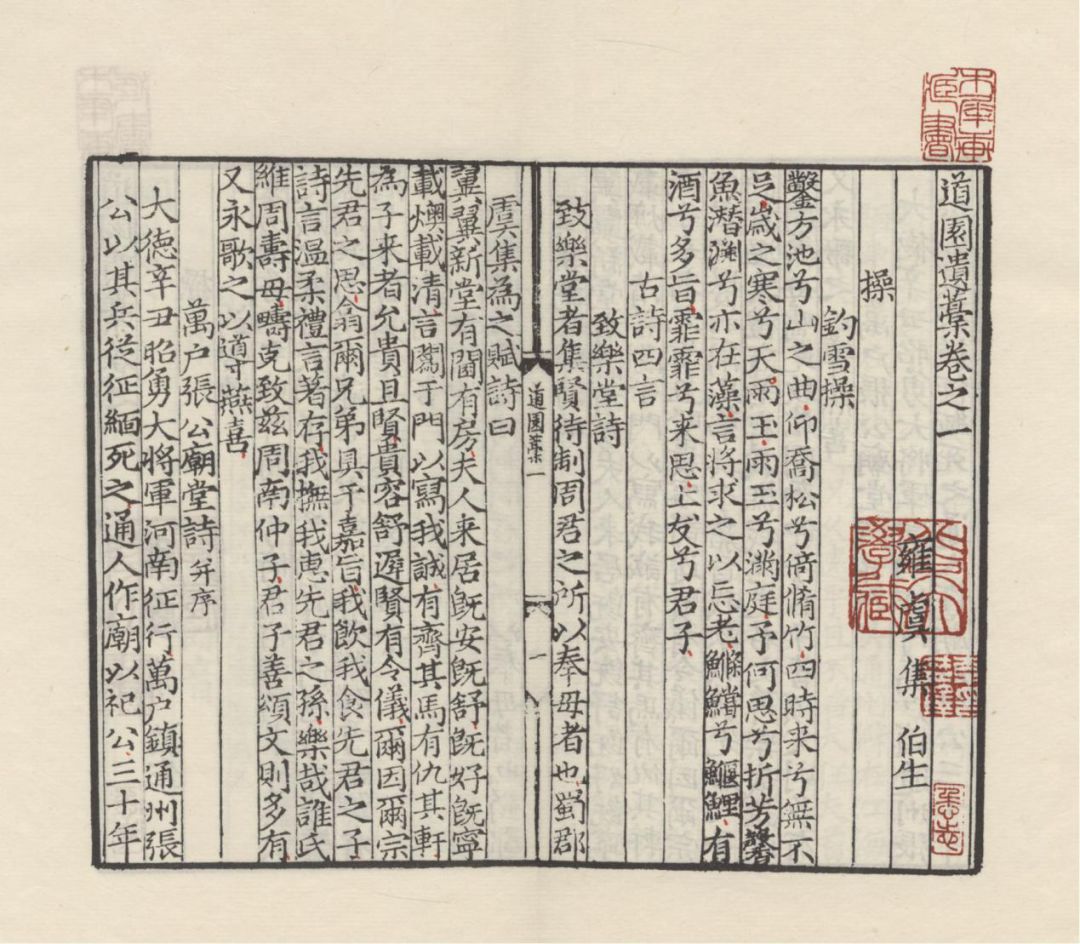 道園遺藁卷之一
雍虞集伯生
操
釣雪操
鑿方池兮山之曲仰喬松兮倚脩竹四時来兮無不
足歲之寒兮天雨玉雨玉兮滿庭予何思兮折芳馨
魚潛淵兮亦在藻言將求之以忘老鱨兮鰋鯉有
酒兮多旨霏霏兮来思上友兮君子
古詩四言
致樂堂詩
致樂堂者集賢待制周君之所以奉母者也蜀郡
虞集為之賦詩曰
翼翼新堂有閤有房夫人来居旣安旣舒旣好旣寧
載燠載清言闔于門以寫我誠有齊其馬有仇其軒
為子来者允貴且賢貴容舒遲賢有令儀爾因爾宗
先君之思翁爾兄弟具于嘉旨我飲我食先君之子
詩言溫柔禮言著存我撫我惠先君之孫樂哉誰氏
維周壽母疇克致兹周南仲子君子善頌文則多有
又永歌之以導燕喜
萬户張公廟堂詩并序
大德辛丑昭勇大將軍河南征行萬户鎮通州張
公以其兵從征緬死之通人作廟以祀公三十年
道園藁一
一